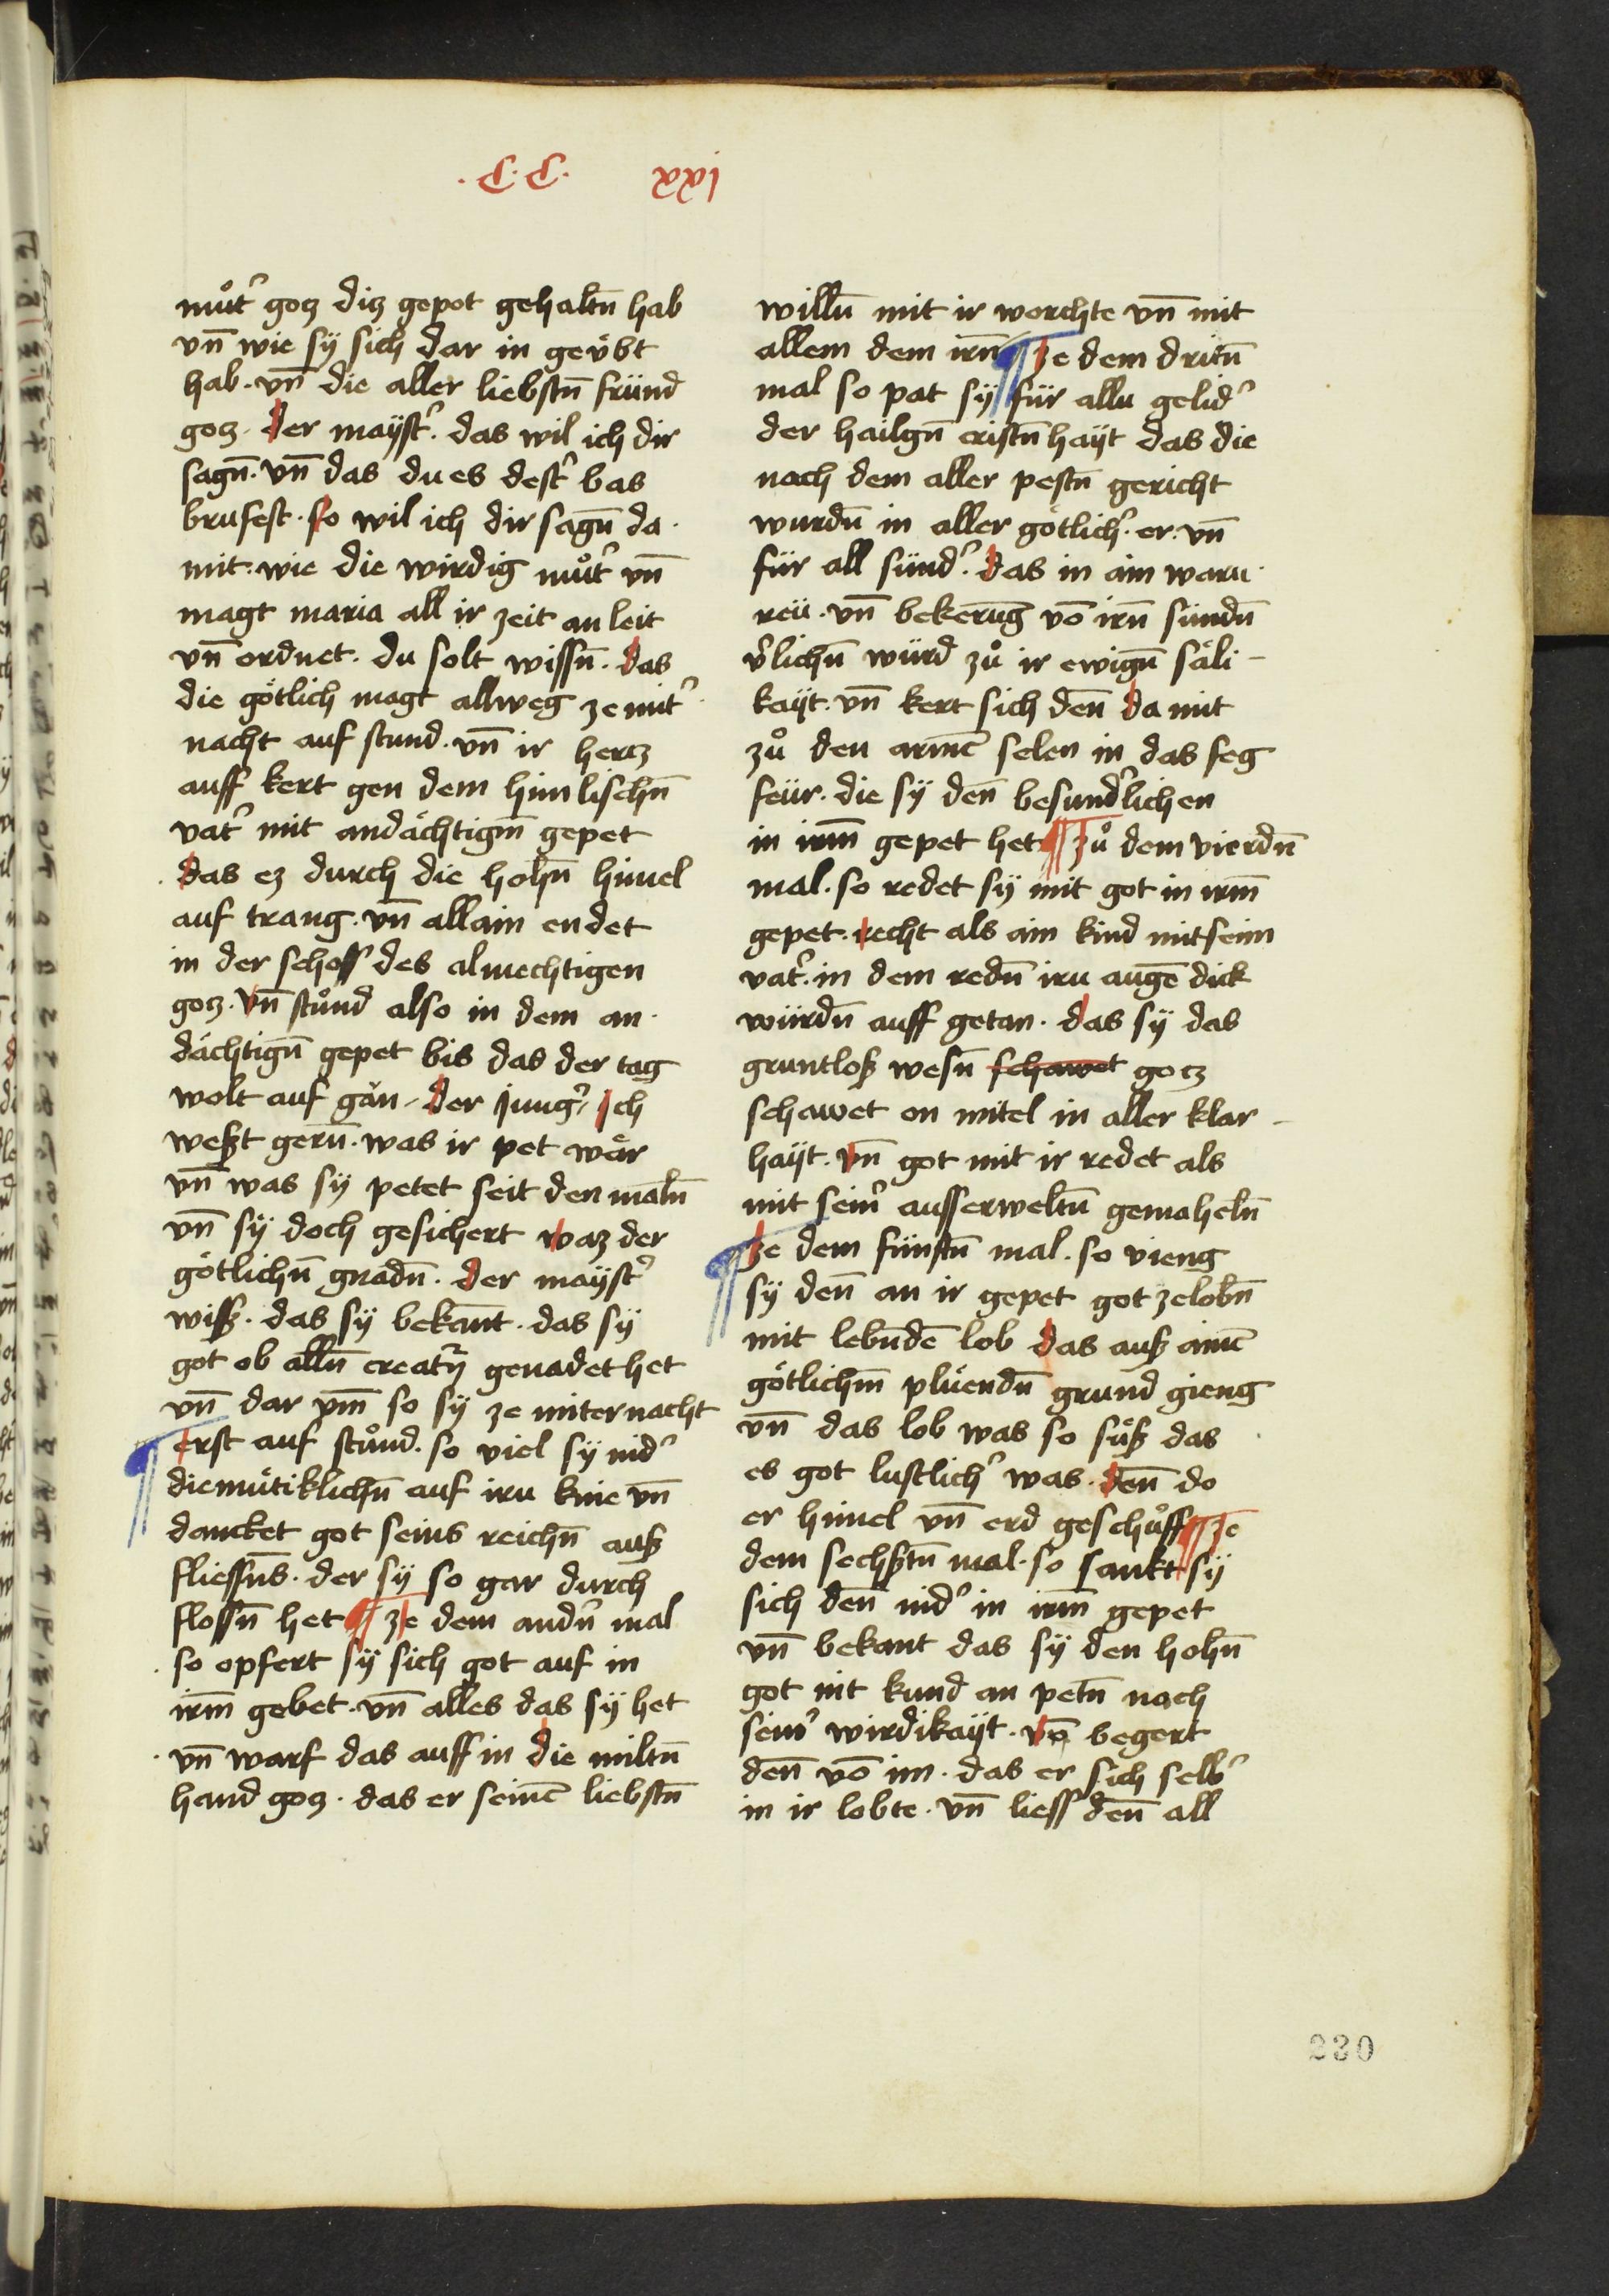 .C.C. lxxi
můt͛ gocz dicz gepot gehaltn̄ hab
vn̄ wie sÿ sich dar in geübt
hab · vn̄ die aller liebstn̄ fründ
gocz · der maÿst͛ · das wil ich dir
sagn̄ · vn̄ das du es dest͛ bas
brufest · so wil ich dir sagn̄ da
mit · wie die wirdig můt͛ vn̄
magt maria all ir zeit an leit
vn̄ ordnet · du solt wissn̄ · das
die götlich magt allweg ze mit͛
nacht auf stund · vn̄ ir hercz
auff kert gen dem himlischn̄
vat͛ mit andächtigm̄ gepet
das ez durch die hohn̄ himel
auf trang · vn̄ allain endet
in der schoss des almechtigen
gocz · vn̄ stůnd also in dem an
dächtign̄ gepet bis das der tag
wolt auf gän · der jung͛ · Ich
weßt gern̄ · was ir pet wär
vn̄ was sÿ petet seit den maln̄
vn̄ sÿ doch gesichert waz der
götlichn̄ gnadn̄ · der maÿst͛
wiß · das sÿ bekant · das sÿ
got ob alln̄ creatr̄n genadet het
vn̄ dar vm̄ so sÿ ze miternacht
erst auf stůnd · so viel sÿ nid͛
diemütiklichn̄ auf iru knie vn̄
dancket got seins reichn̄ auß
fliessn̄s · der sÿ so gar durch
flossn̄ het ¶ ze dem andn̄ mal
so opfert sÿ sich got auf in
irm̄ gebet · vn̄ alles das sÿ het
vn̄ warf das auff in die miltn̄
hand gocz · das er seinē liebstn̄
willn̄ mit ir worchte vn̄ mit
allem dem irn̄ ¶ ze dem dritn̄
mal so pat sÿ für allu gelid͛
der hailgn̄ cristn̄haÿt das die
nach dem aller pestn̄ gericht
wurdn̄ in aller götlich͛ er · vn̄
für all sünd͛ · das in ain waru
reü · vn̄ bekerūg vō irn̄ sündn̄
v͛lichn̄ würd zů ir ewign̄ säli-
kaÿt · vn̄ kert sich den̄ da mit
zů den armē selen in das feg
feür · die sÿ den̄ besund͛lichen
in irm̄ gepet het ¶ zů dem vierdn̄
mal · so redet sÿ mit got in irm̄
gepet · recht als ain kind mit seim
vat͛ · in dem redn̄ iru augē dick
würdn̄ auff getan · das sÿ das
gruntloß wesn̄ schawet gocz
schawet on mitel in aller klar-
haÿt · vn̄ got mit ir redet als
mit seim͛ ausserweltn̄ gemaheln̄
¶ ze dem fünftn̄ mal · so vieng
sÿ den̄ an ir gepet got ze lobn̄
mit lebn̄dē lob das auß aimē
götlichm̄ plüendn̄ grund gieng
vn̄ das lob was so süß das
es got lustlich͛ was · den̄ do
er himel vn̄ erd geschůff ¶ ze
dem sechßtn̄ mal · so sankt sÿ
sich den̄ nid͛ in irm̄ gepet
vn̄ bekant das sÿ den hohn̄
got nit kund an petn̄ nach
seim͛ wirdikaÿt · vō begert
den̄ vō im · das er sich selb͛
in ir lobte · vn̄ liess den̄ all
230